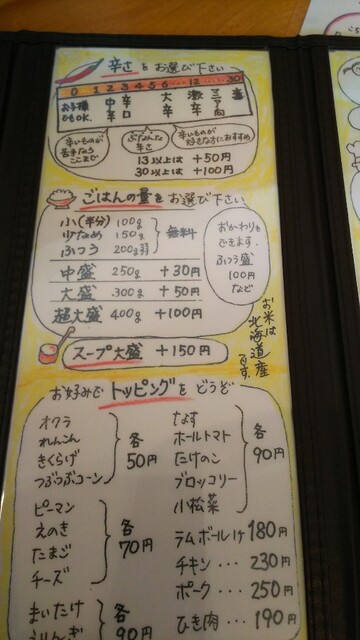 辛さをお選び下さい
0 1 2 3 4 5 6 … 12 … 30
お子様もOK. 中辛 辛口 大辛 激辛 マニア向
辛いものが苦手ならここまで
ぶなんな辛さ
辛いものが好きな方におすすめ
13以上は +50円
30以上は +100円
ごはんの量をお選び下さい
小(半分) 100g
少なめ 150g
ふつう 200g弱
無料
中盛 250g +30円
大盛 300g +50円
超大盛 400g +100円
おかわりもできます.
ふつう盛
100円
など
お米は北海道産です。
スープ大盛 +150円
お好みでトッピングをどうぞ
オクラ
れんこん
きくらげ
つぶつぶコーン
各50円
ピーマン
えのき
たまご
チーズ
各70円
まいたけ
各90円
なす
ホールトマト
たけのこ
ブロッコリー
小松菜
各90円
ラムボール1ヶ 180円
チキン … 230円
ポーク … 250円
ひき肉 … 190円